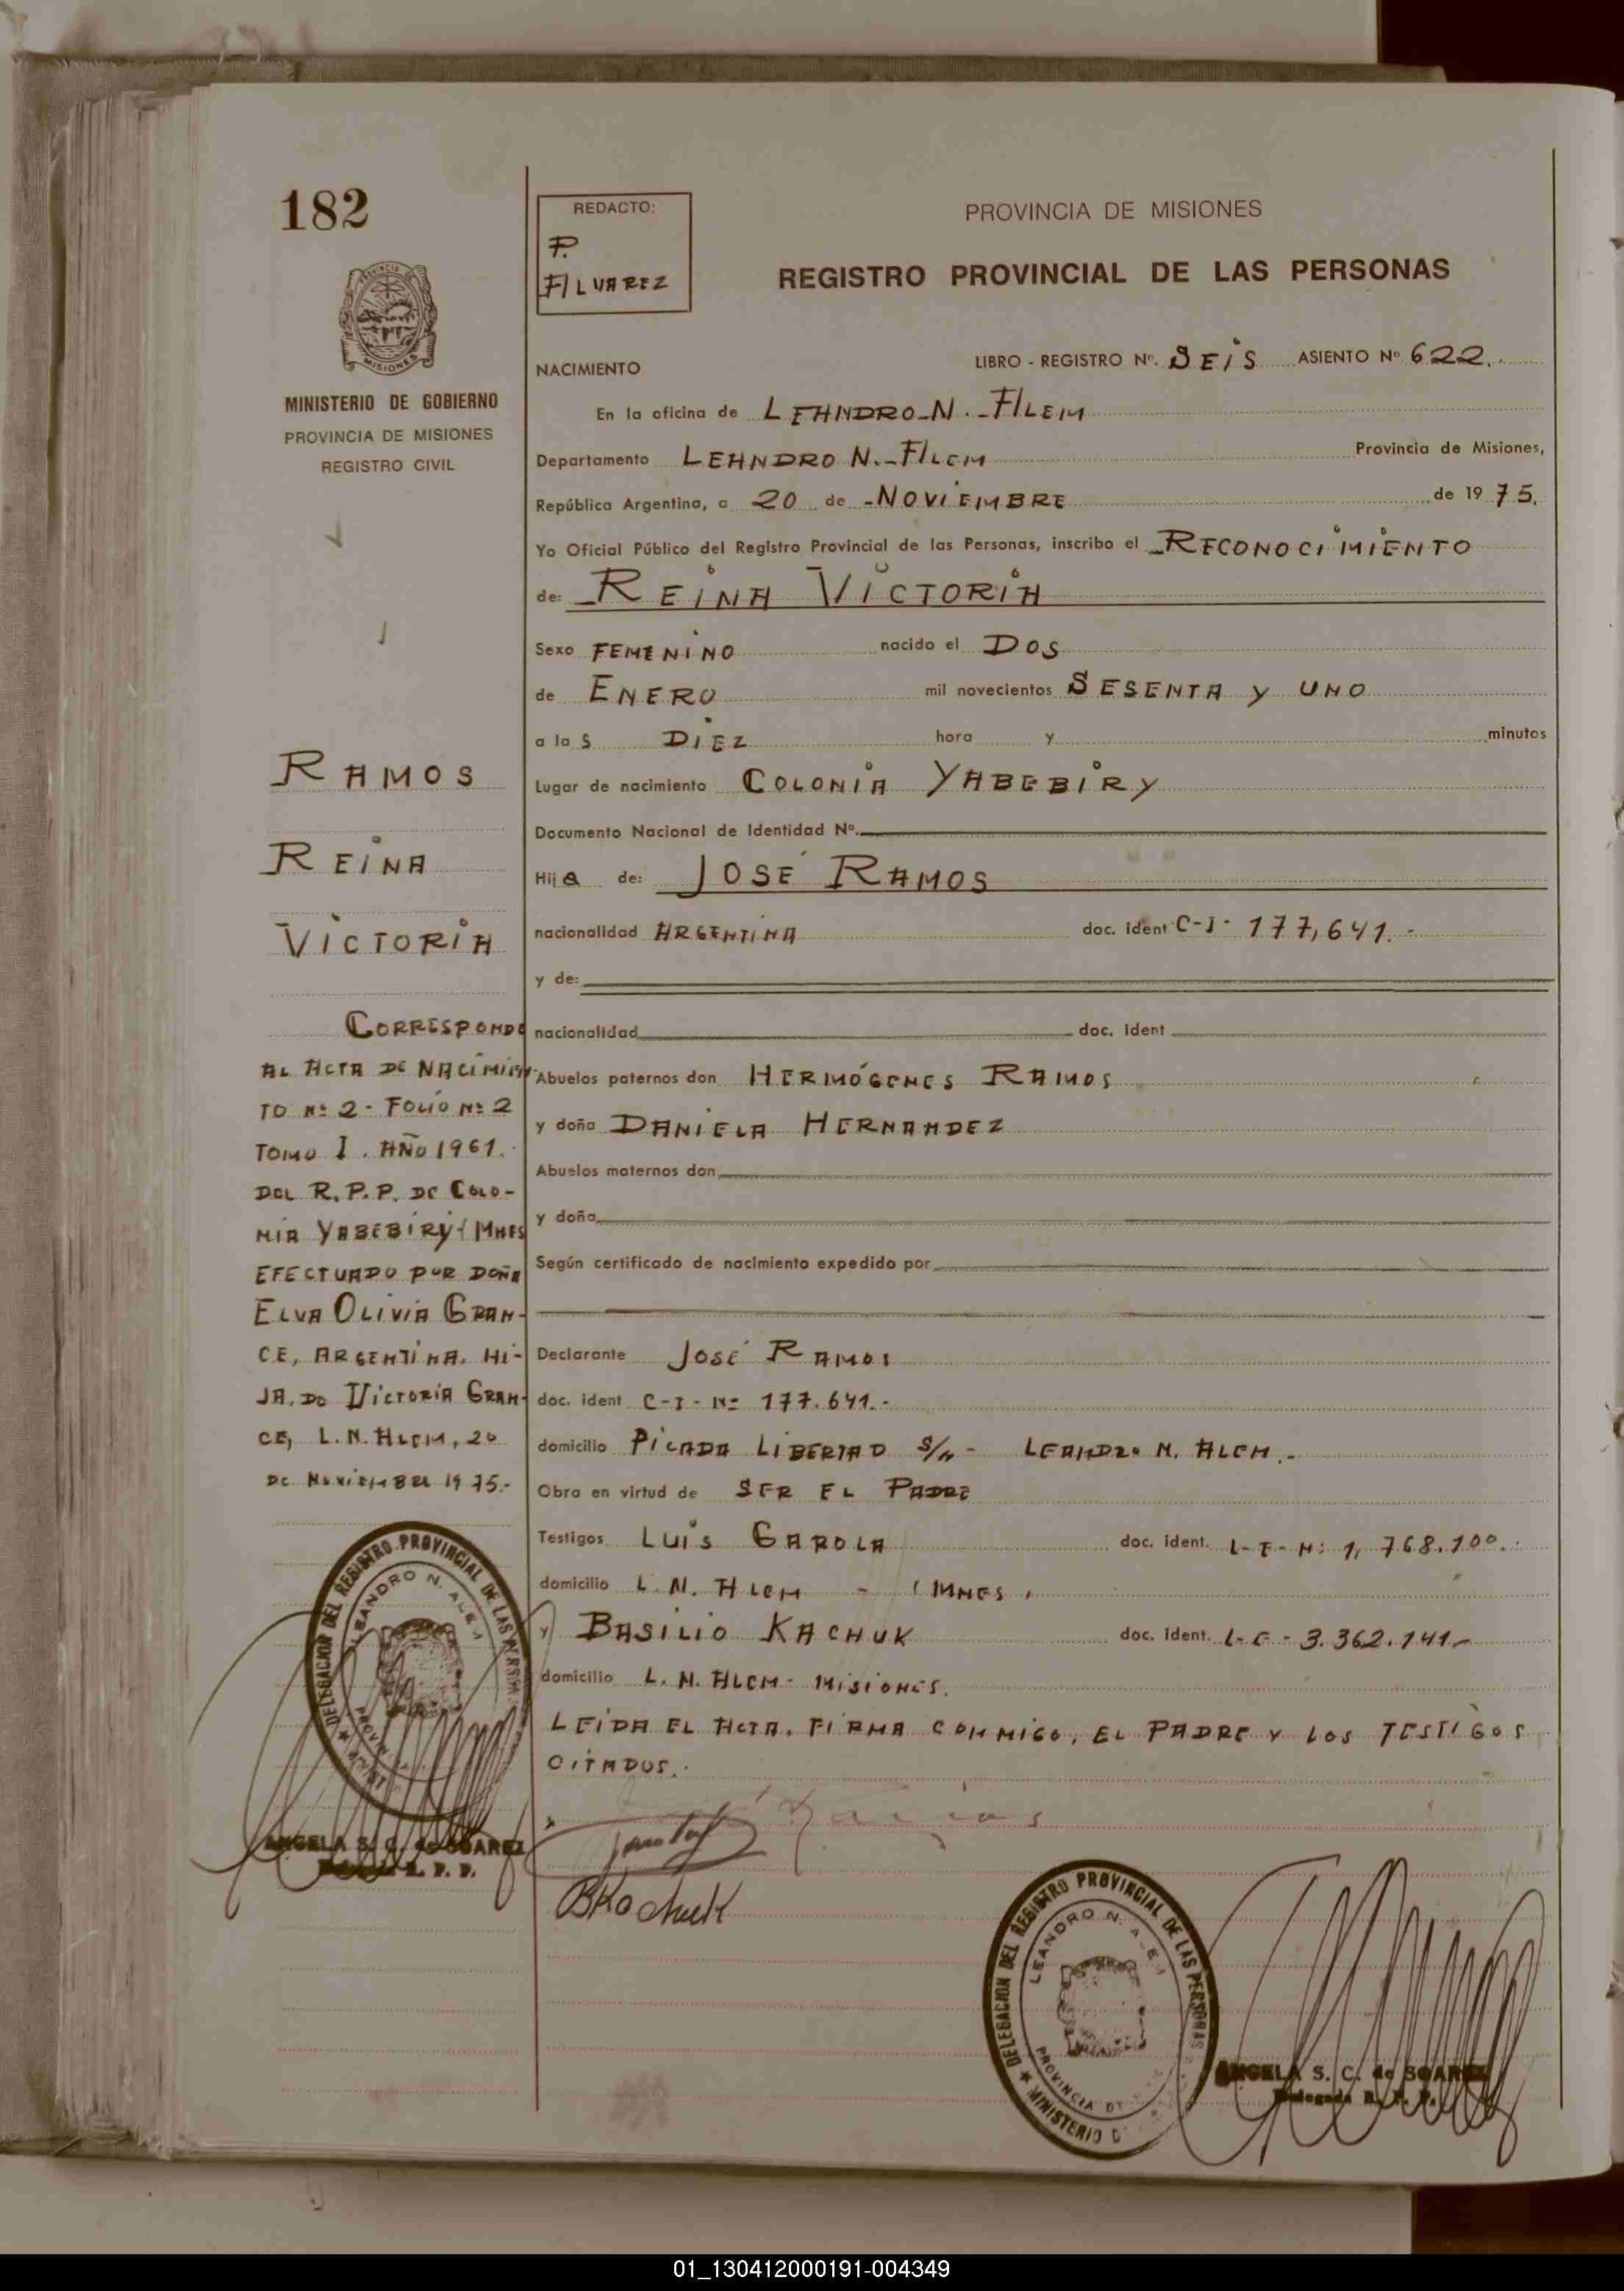 182
PROVINCIA DE MISIONES
MINISTERIO DE GOBIERNO
PROVINCIA DE MISIONES
REGISTRO CIVIL
RAMOS
REINA
VICTORIA
CORRESPONDE
AL ACTA DE NACIMIEN-
TO Nº 2 - FOLIO Nº 2
TOMO I. AÑO 1961.
DEL R.P.P. DE COLO-
NIA YABEBIRY-(MNES
EFECTUADO POR DOÑA
ELVA OLIVIA GRAN-
CE, ARGENTINA. HI-
JA. DE VICTORIA GRAN-
CE, L.N. ALEM, 20
DE NOVIEMBRE 1975.-
DELEGACION DEL REGISTRO PROVINCIAL DE LAS PERSONAS
LEANDRO N. ALEM
ANGELA S. C. de SOAREZ
R. P. P.
REDACTO:
P.
ALVAREZ
PROVINCIA DE MISIONES
REGISTRO PROVINCIAL DE LAS PERSONAS
NACIMIENTO LIBRO - REGISTRO Nº. SEIS ASIENTO Nº 622.
En la oficina de LEANDRO-N.-ALEM
Departamento LEANDRO N.-ALEM Provincia de Misiones,
República Argentina, a 20 de -NOVIEMBRE de 1975.
Yo Oficial Público del Registro Provincial de las Personas, inscribo el -RECONOCIMIENTO
de: -REINA VICTORIA
Sexo FEMENINO nacido el DOS
de ENERO mil novecientos SESENTA Y UNO
a la S DIEZ hora y minutos
Lugar de nacimiento COLONIA YABEBIRY
Documento Nacional de Identidad Nº.
Hija de: JOSÉ RAMOS
nacionalidad ARGENTINA doc. ident C-I- 177,641.-
y de:
nacionalidad doc. ident
Abuelos paternos don HERMÓGENES RAMOS
y doña DANIELA HERNANDEZ
Abuelos maternos don
y doña
Según certificado de nacimiento expedido por
Declarante JOSÉ RAMOS
doc. ident C-I-Nº 177.641.-
domicilio PICADA LIBERTAD S/N- LEANDRO N. ALEM.-
Obra en virtud de SER EL PADRE
Testigos LUIS GAROLA doc. ident. L-E-N: 1,768.100.
domicilio L.N. ALEM - (MNES,
y BASILIO KACHUK doc. ident. L-E-3.362.141-
domicilio L.N. ALEM- MISIONES.
LEIDA EL ACTA. FIRMA CONMIGO, EL PADRE Y LOS TESTIGOS
CITADOS.
BKachuk
DELEGACION DEL REGISTRO PROVINCIAL DE LAS PERSONAS
LEANDRO N. ALEM
ANGELA S. C. de SOAREZ
Delegada R. P. P.
01_130412000191-004349